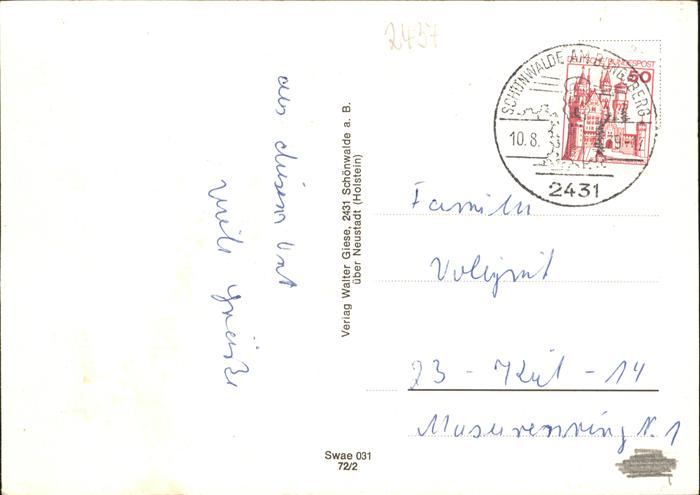 2437
SCHÖNWALDE AM BUNGSBERG
DEUTSCHE BUNDESPOST
50
10.8.
2431
aus diesem Ort
viele Grüße
Verlag Walter Giese, 2431 Schönwalde a. B.
über Neustadt (Holstein)
Familie
23 - Kiel - 14
Masurenring N. 1
Swae 031
72/2